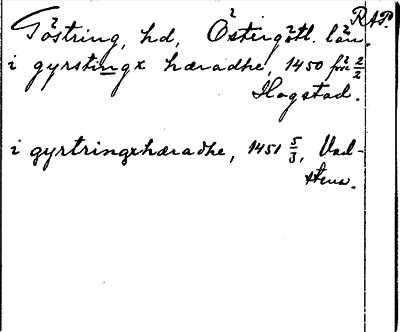 RAP.
Göstring, hd, Östergötl. län.
i gyrstingx hæradhe, 1450 2/2
Hogstad.
i gyrtringxhæradhe, 1451 5/3, Vad-
stena.